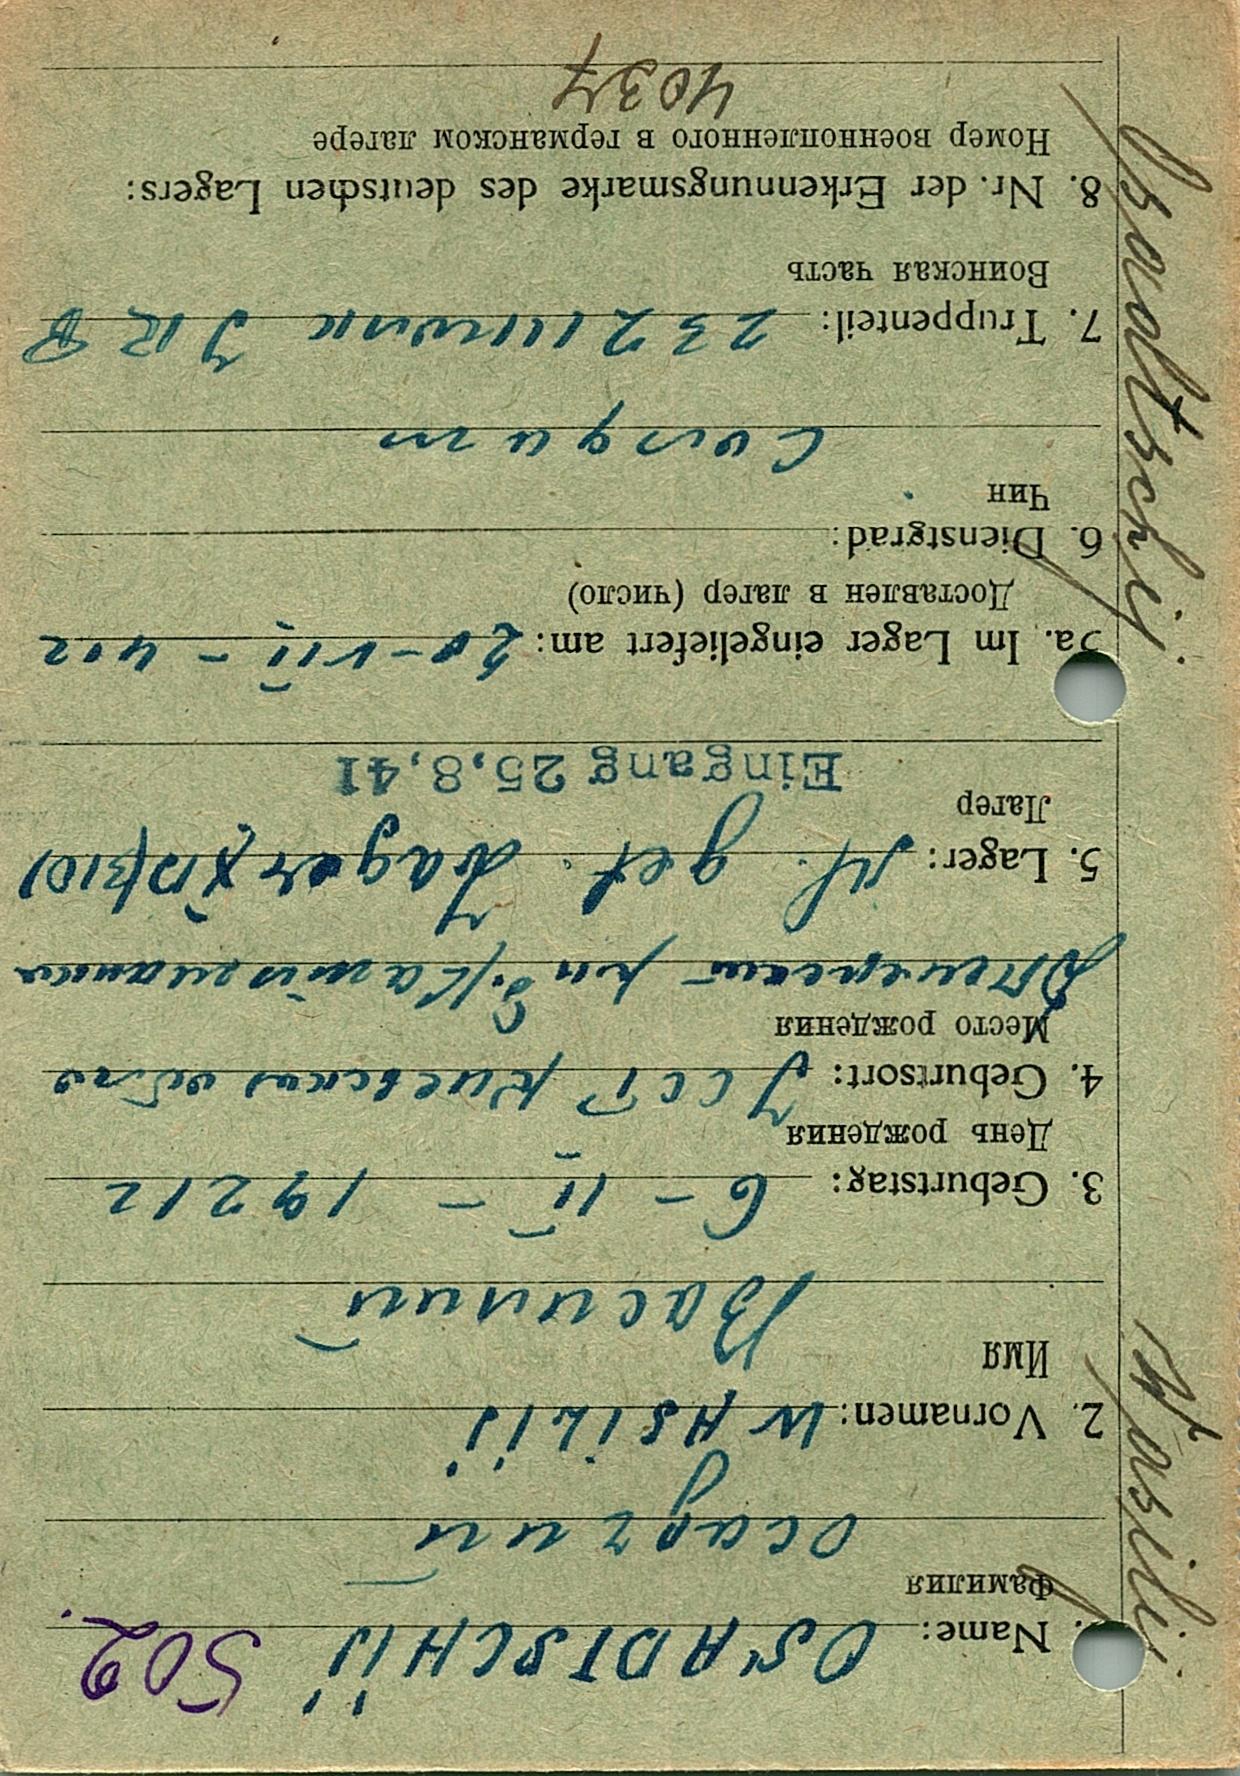 Osadtschij Wasilij
502.
1. Name: OSADTSCHIJ
Фамилия
Осадчий
2. Vornamen: WASiLIJ
Имя
Василий
3. Geburtstag: 6 – II – 1921 г
День рождения
4. Geburtsort: УССР Киевская обл
Место рождения
5. Lager: Lager XI D (310)
Лагер
Eingang 25.8.41
5a. Im Lager eingeliefert am: 20 – VII – 41 г
Доставлен в лагер (число)
6. Dienstgrad:
Чин
Солдат
7. Truppenteil: 232 JR
Воинская часть
8. Nr. der Erkennungsmarke des deutschen Lagers:
Номер военнопленного в германском лагере
4037